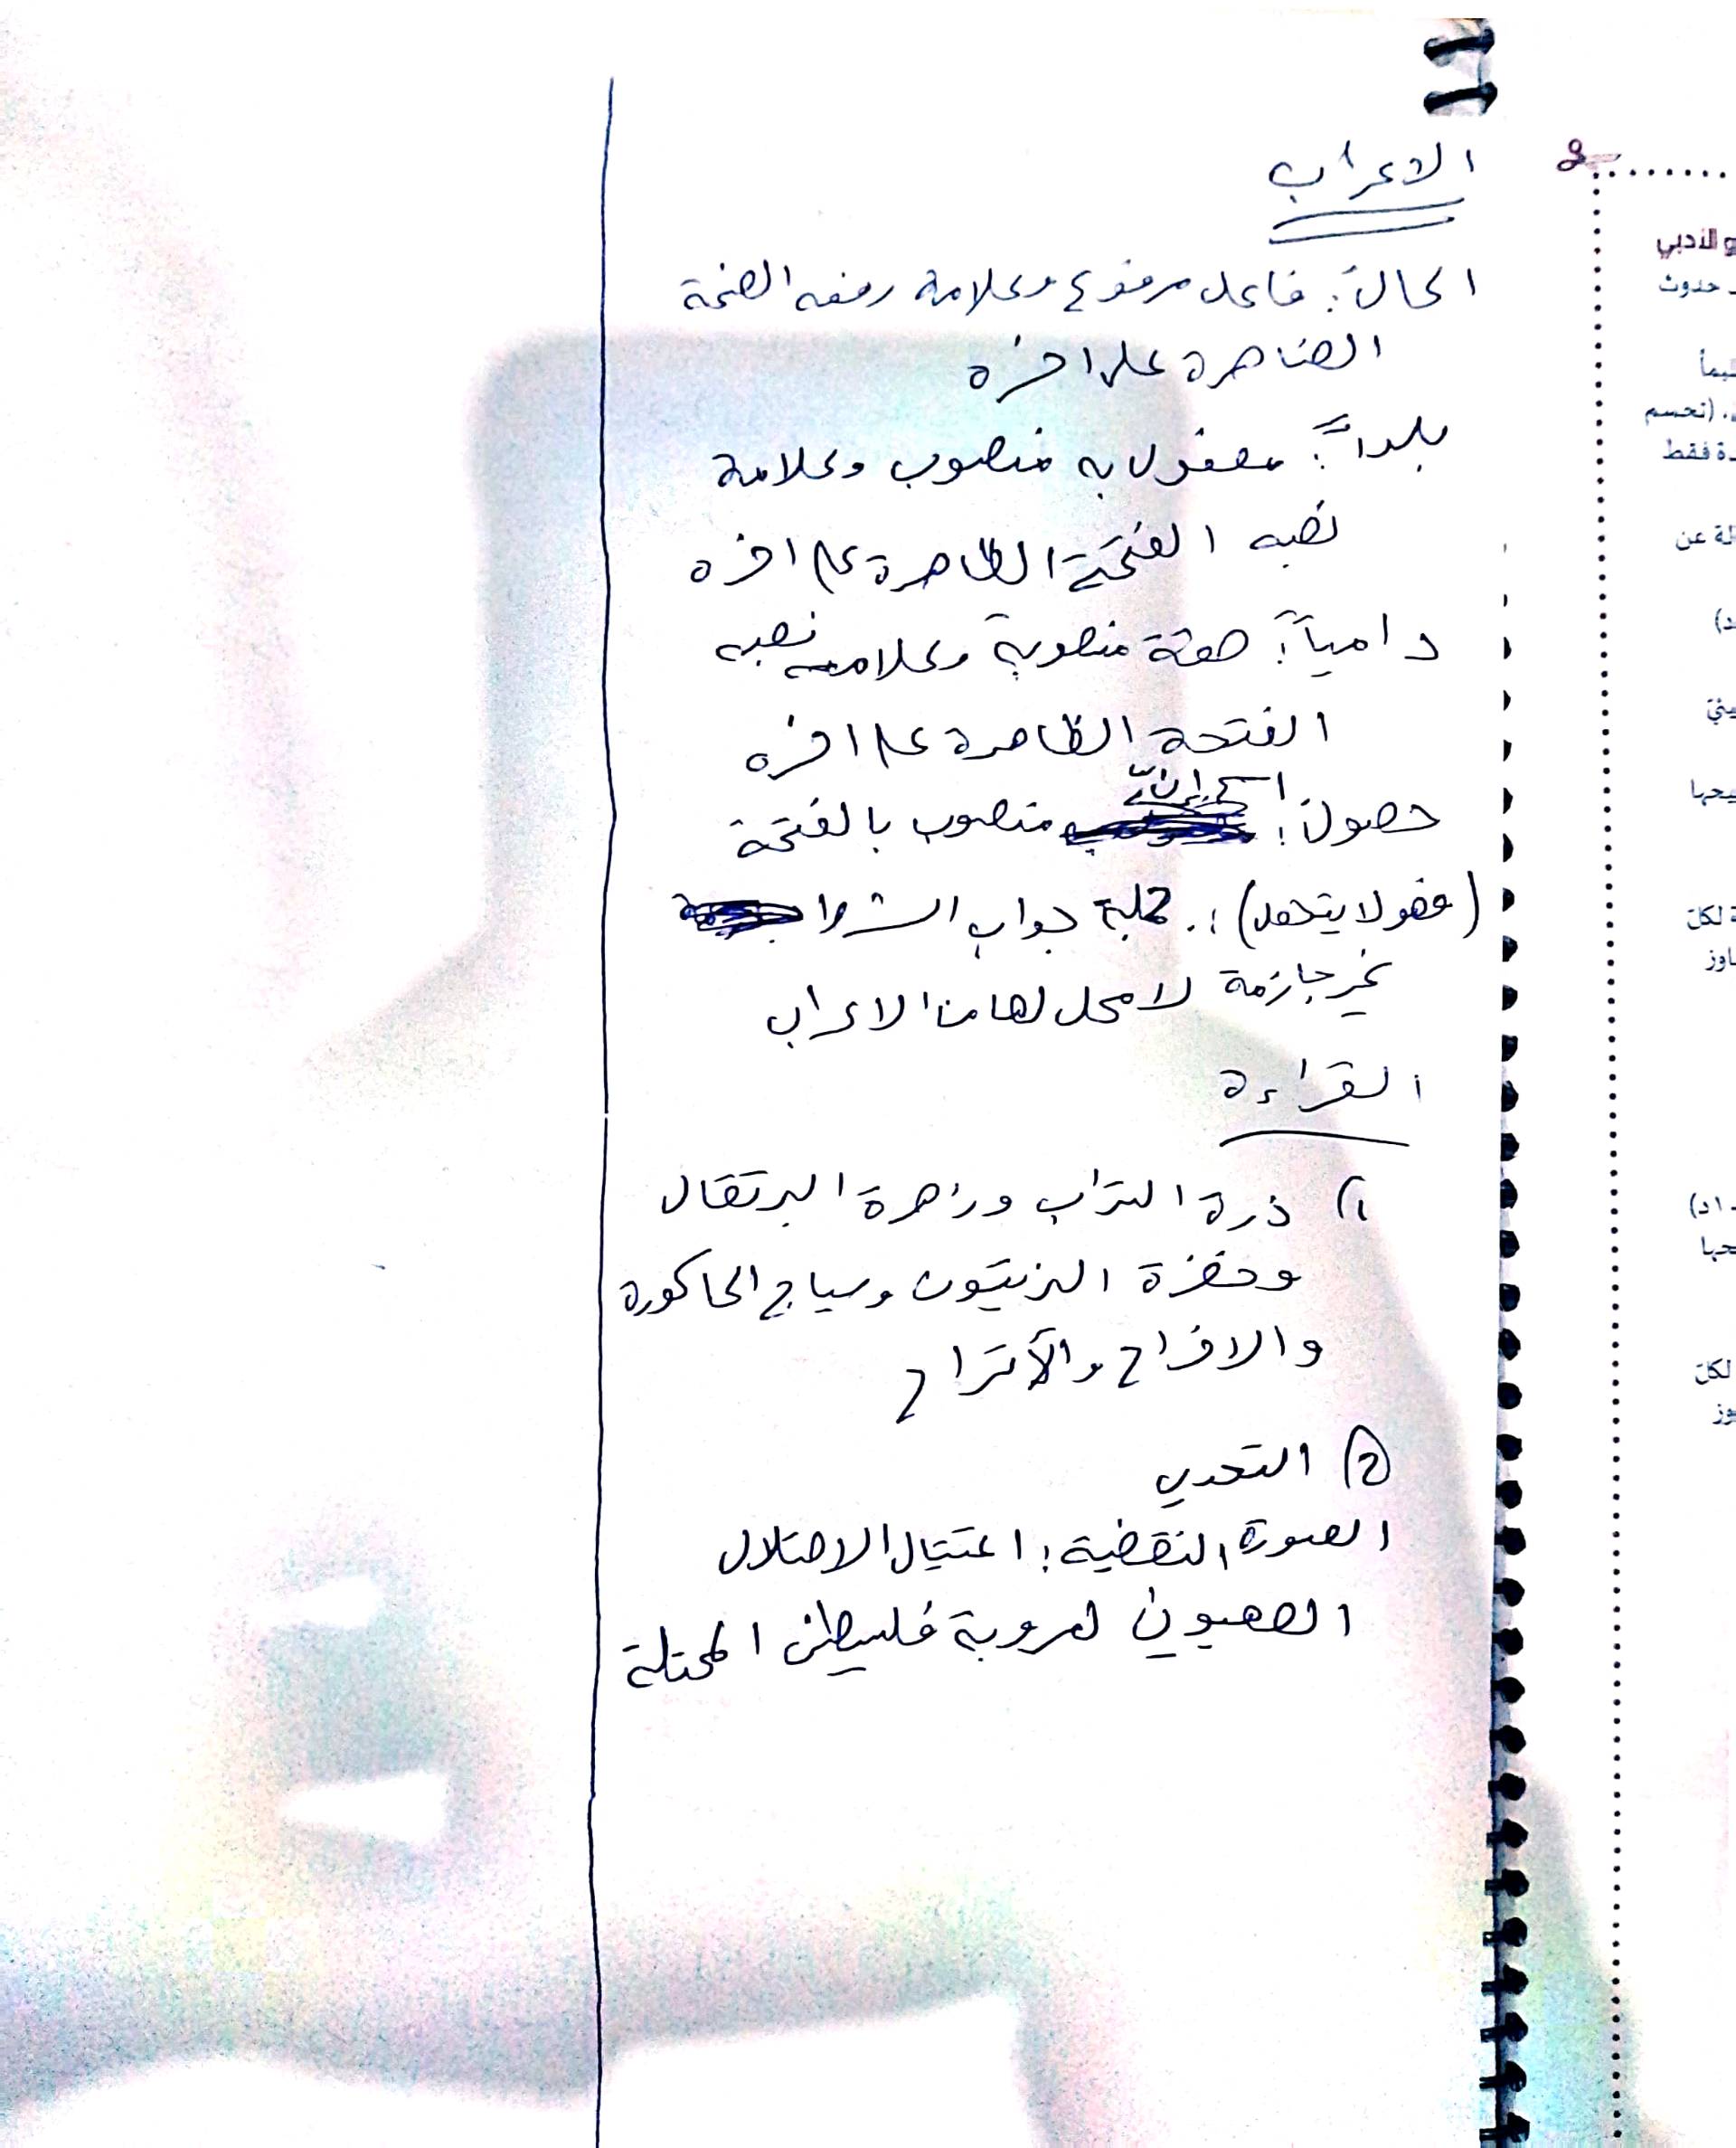 الاعراب
الحالُ: فاعل مرفوع وعلامة رفعه الضمة
الضاهرة على اخره
بلداً: مفعول به منصوب وعلامة
نصبه الفتحة الظاهرة على اخره
دامياً: صفة منصوبة وعلامة نصبه
الفتحة الظاهرة على اخره
حصولَ: اسم إنّ منصوب بالفتحة
(فهو لا يتحمل): جملة جواب الشرط
غير جازمة لا محل لها من الاعراب
القراءة
1) ذرة التراب وزهرة البرتقال
وخضرة الزيتون وسياج الحاكورة
والافراح والأتراح
2) التحدي
الصورة النقضية: اغتيال الاحتلال
الصهيوني لعروبة فلسطين المحتلة
و الأدبي
حدوث
(تحسم
دة فقط
لة عن
(د
يحها
لكل
اوز
(اد
حها
لكل
وز